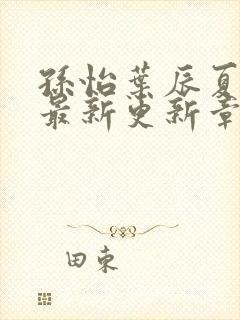 孫怡葉辰夏
最新更新章
田束